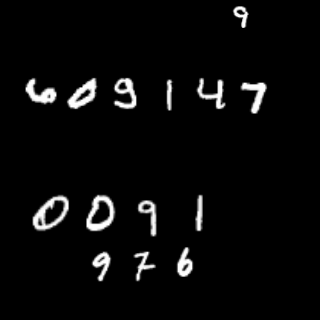 9
609147
0091
976